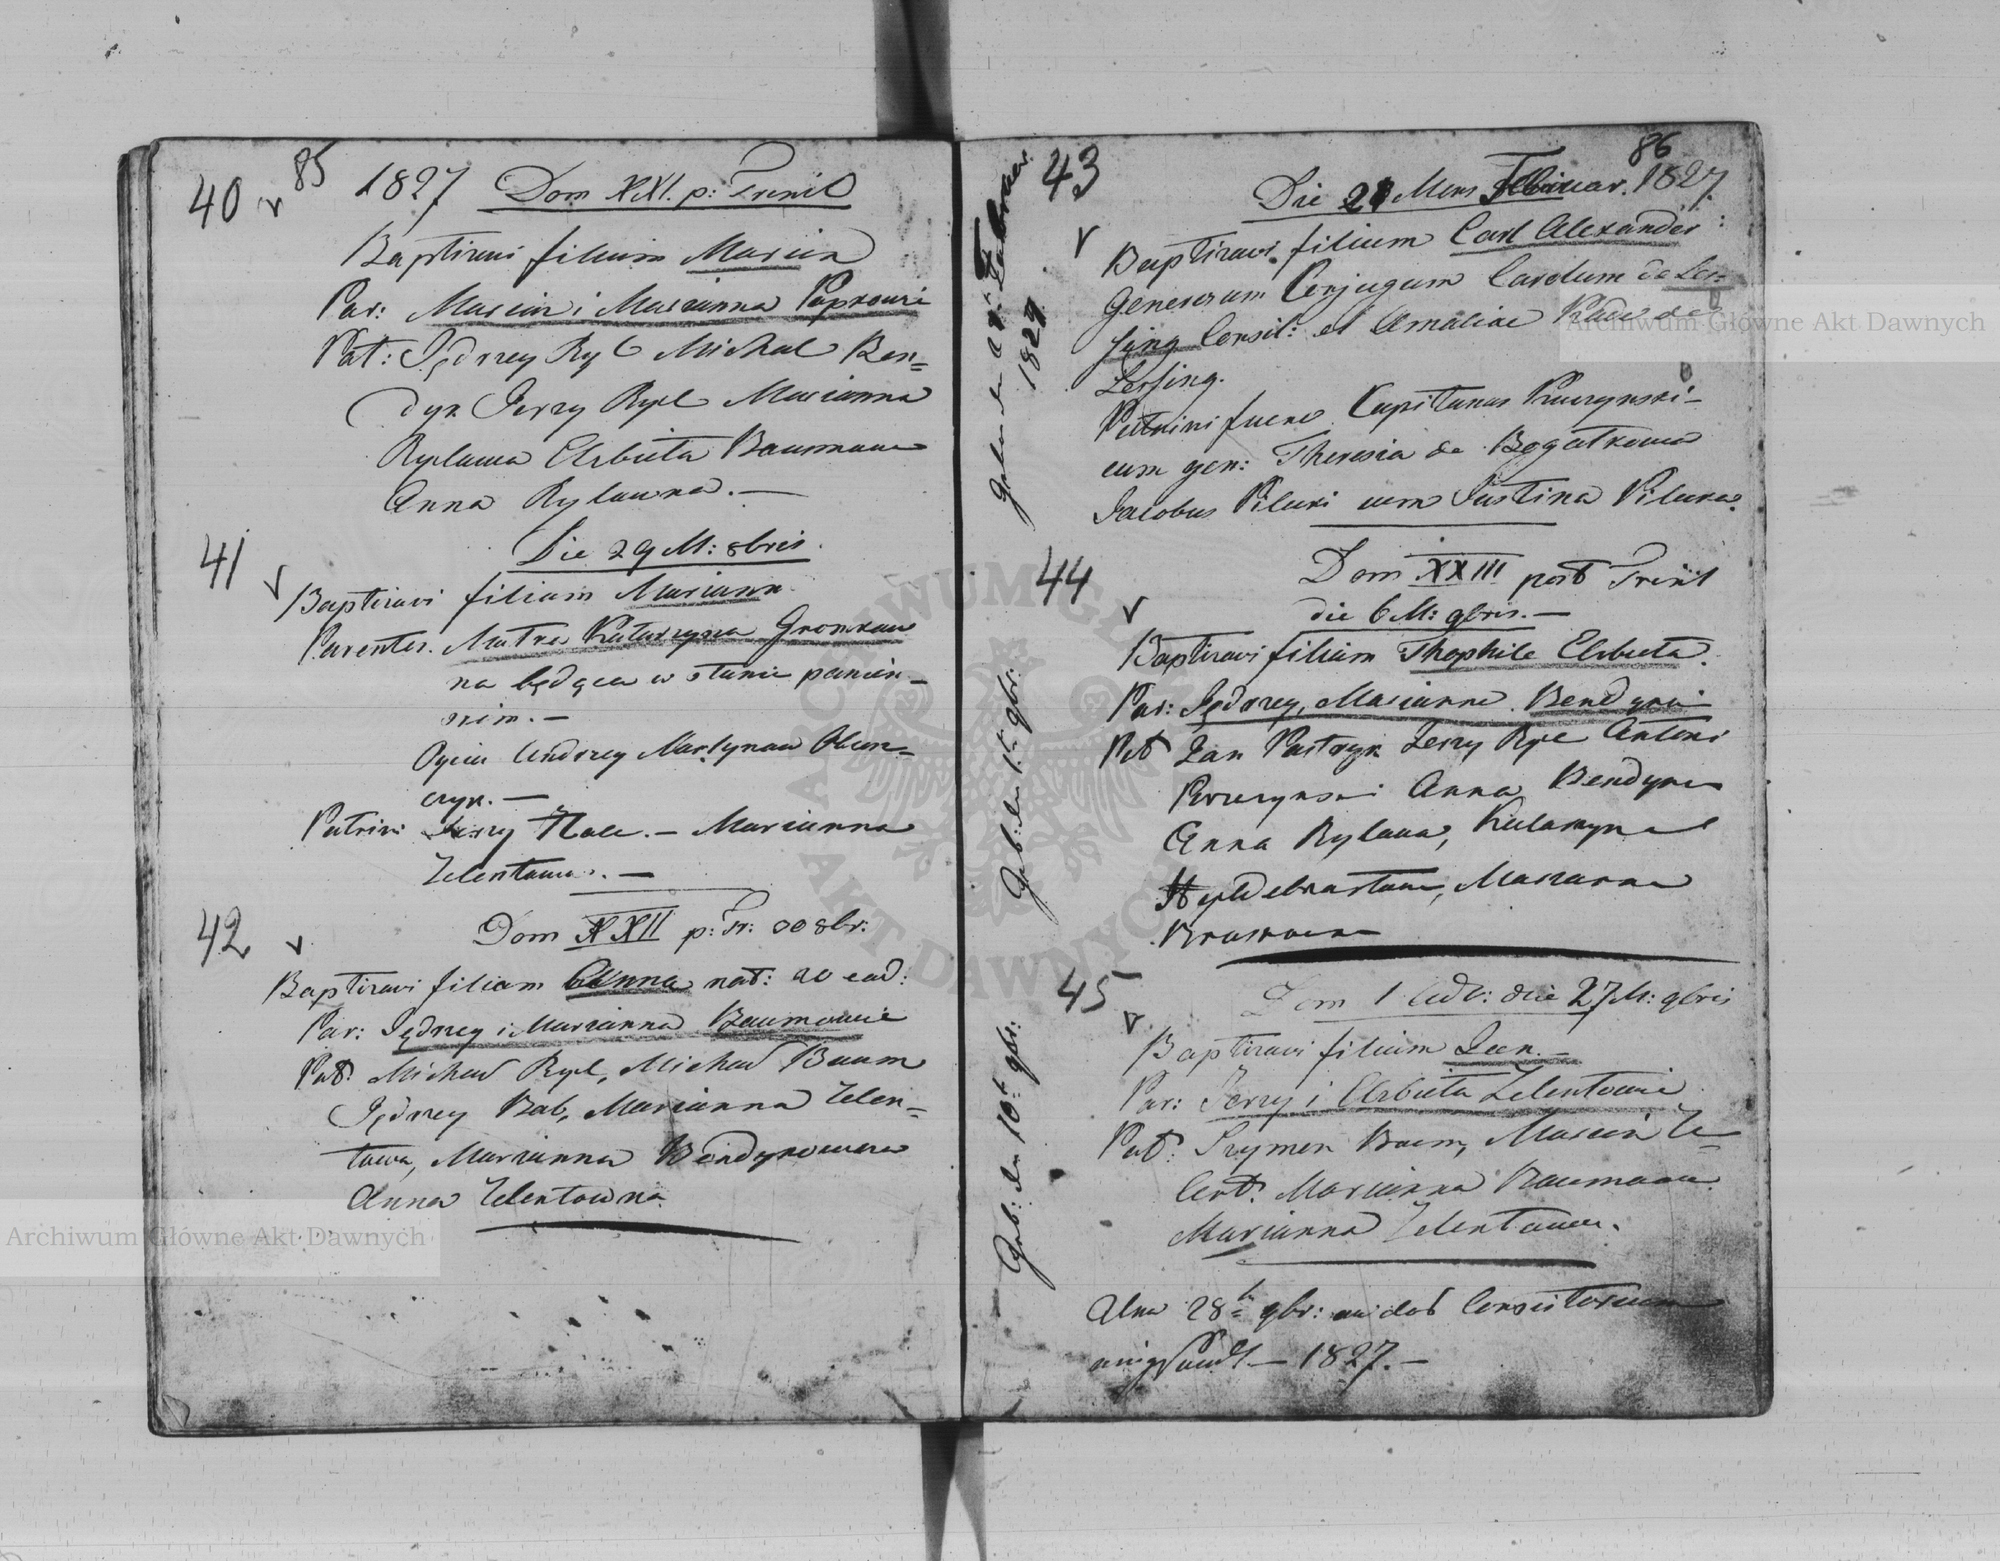 85
40 v 1827 Dom XXI. p: Trinit
Baptizavi filium Marcin
Par: Marcin i Marianna Papkowie
Pat: Jędrzey Ryl Michal Ben=
dyk Jerzy Rył Marianna
Rylowa Elzbieta Baumowa
Anna Rylowna. —
41 v Die 29 M: 8bris.
Baptizavi filiam Mariann
Parentes. Matre Katarzyna Gromkow
na będąca w stanie panien—
nim. —
Oyciec Andrzey Martynow
czyk. —
Patrini Jerzy — Marianna
Zelentowa. —
42 v Dom XXII p: Tr: 8br:
Baptizavi filiam Anna nat: 20 ead:
Par: Jędrzey i Marianna Baumowie
Pat: Michał Rył, Michał Baum
Jędrzey Bab, Marianna Zelen=
towa, Marianna Bendykowa
Anna Zelentowna.
86
43 v Die 21 Mens Februar. 1827.
Baptizavi filium Carl Alexander:
Generorum Conjugum Carolum de Les=
sing Consil: et Amaliae de
Lessing.
Patrini fuere Capitanus Kuczynski—
cum gen: Theresia de Bogutkowa
Jacobus Piluki cum Justina Piluka.
44 v Dom XXIII post Trinit
die 6 M: 9bris. —
Baptizavi filiam Thophile Elzbieta.
Par: Jędrzey, Marianna Bendykowie
Pat Jan Pastryk Jerzy Rył Antoni
Kuczynski Anna Bendykow
Anna Rylowa, Katarzyna
Heyldebrantowa, Marianna
45 v Dom 1 Adv: die 27 M: 9bris
Baptizavi filium Jan. —
Par: Jerzy i Elzbieta Zelentowie
Pat: Szymon Baum, Marcin Ze=
lent. Marianna Baumowa.
Marianna Zelentowa.
28 9br: an das Consistorium
eingesandt — 1827. —
Gebor: den Februar 1829
Geb: den 1t 9br:
Geb: den 10t 9br:
Archiwum Główne Akt Dawnych
Archiwum Główne Akt Dawnych
ARCHIWUM GŁÓWNE AKT DAWNYCH